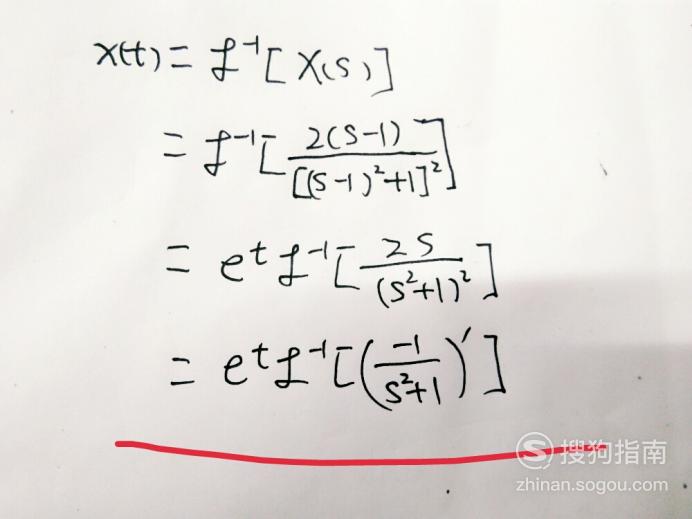 x(t) = ℒ⁻¹[X(s)]
= ℒ⁻¹[2(s-1)/[(s-1)²+1]²]
= eᵗ ℒ⁻¹[2s/(s²+1)²]
= eᵗ ℒ⁻¹[(-1/(s²+1))′]
S 搜狗指南
zhinan.sogou.com